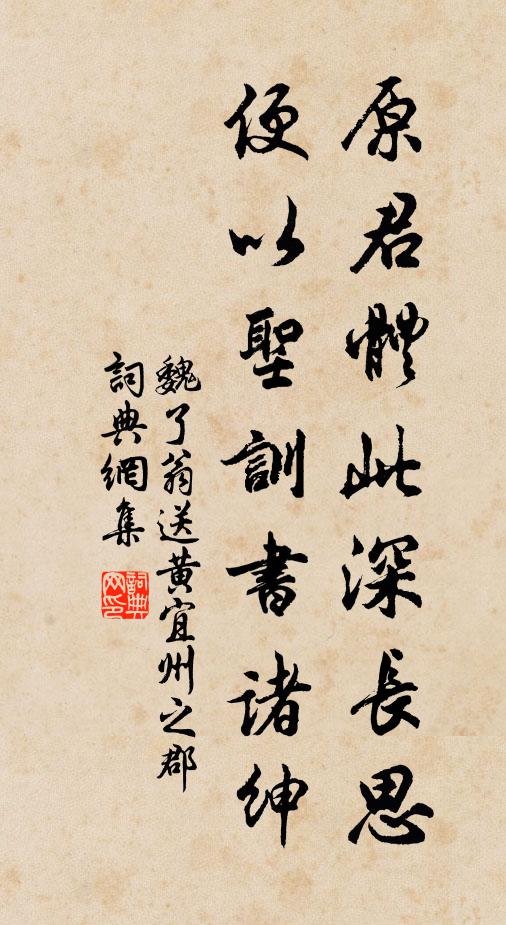 原君體此深長思
便以聖訓書諸紳
魏了翁送黄宜州之郡
詞典網集
詞典网印